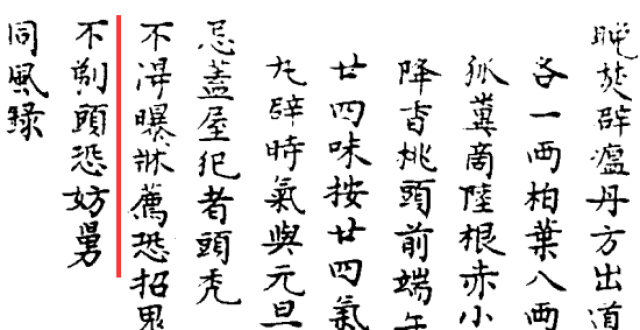 晚焚辟瘟丹方出道
各一両柏葉八両
狐糞啇陸根赤小
降香桃頭前端午
廿四味按廿四氣
九辟時氣與元旦
忌蓋屋犯者頭禿
不淂曝牀薦恐招鬼
不剃頭恐妨舅
同風録